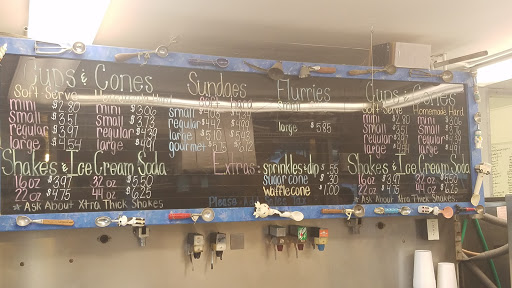 Cups & Cones
Soft Serve
mini $2.80 mini $3.06
small $3.51 small $3.73
regular $3.97 regular $4.39
large $4.54 large $4.91
Shakes & Ice Cream Soda
16 oz $3.97 32 oz $5.50
22 oz $4.75 44 oz $6.25
* Ask About Xtra Thick Shakes.
Sundaes
Soft Hard
small
regular
large $5.10
gourmet
Flurries
small
large $5.85
Extras: sprinkles & dip $.55
sugar cone $.55
waffle cone $1.00
Please Add Sales Tax
Cups & Cones
Soft Serve Homemade Hard
mini $2.80 mini $3.06
small $3.51 small $3.73
regular $3.97 regular $4.39
large large $4.91
Shakes & Ice Cream Soda
16 oz $3.97 32 oz $5.50
22 oz $4.75 44 oz $6.25
* Ask About Xtra Thick Shakes.